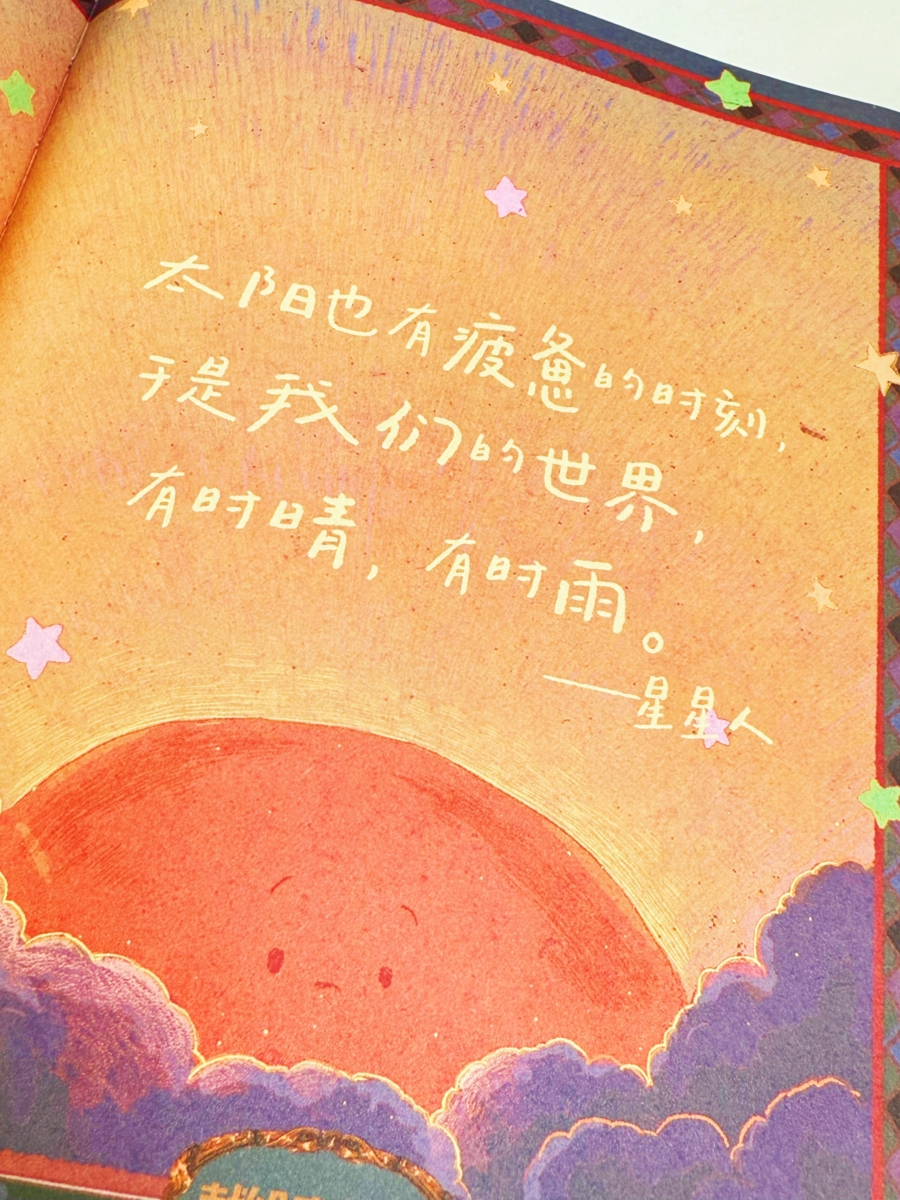 太阳也有疲惫的时刻，
于是我们的世界，
有时晴，有时雨。
——星星人